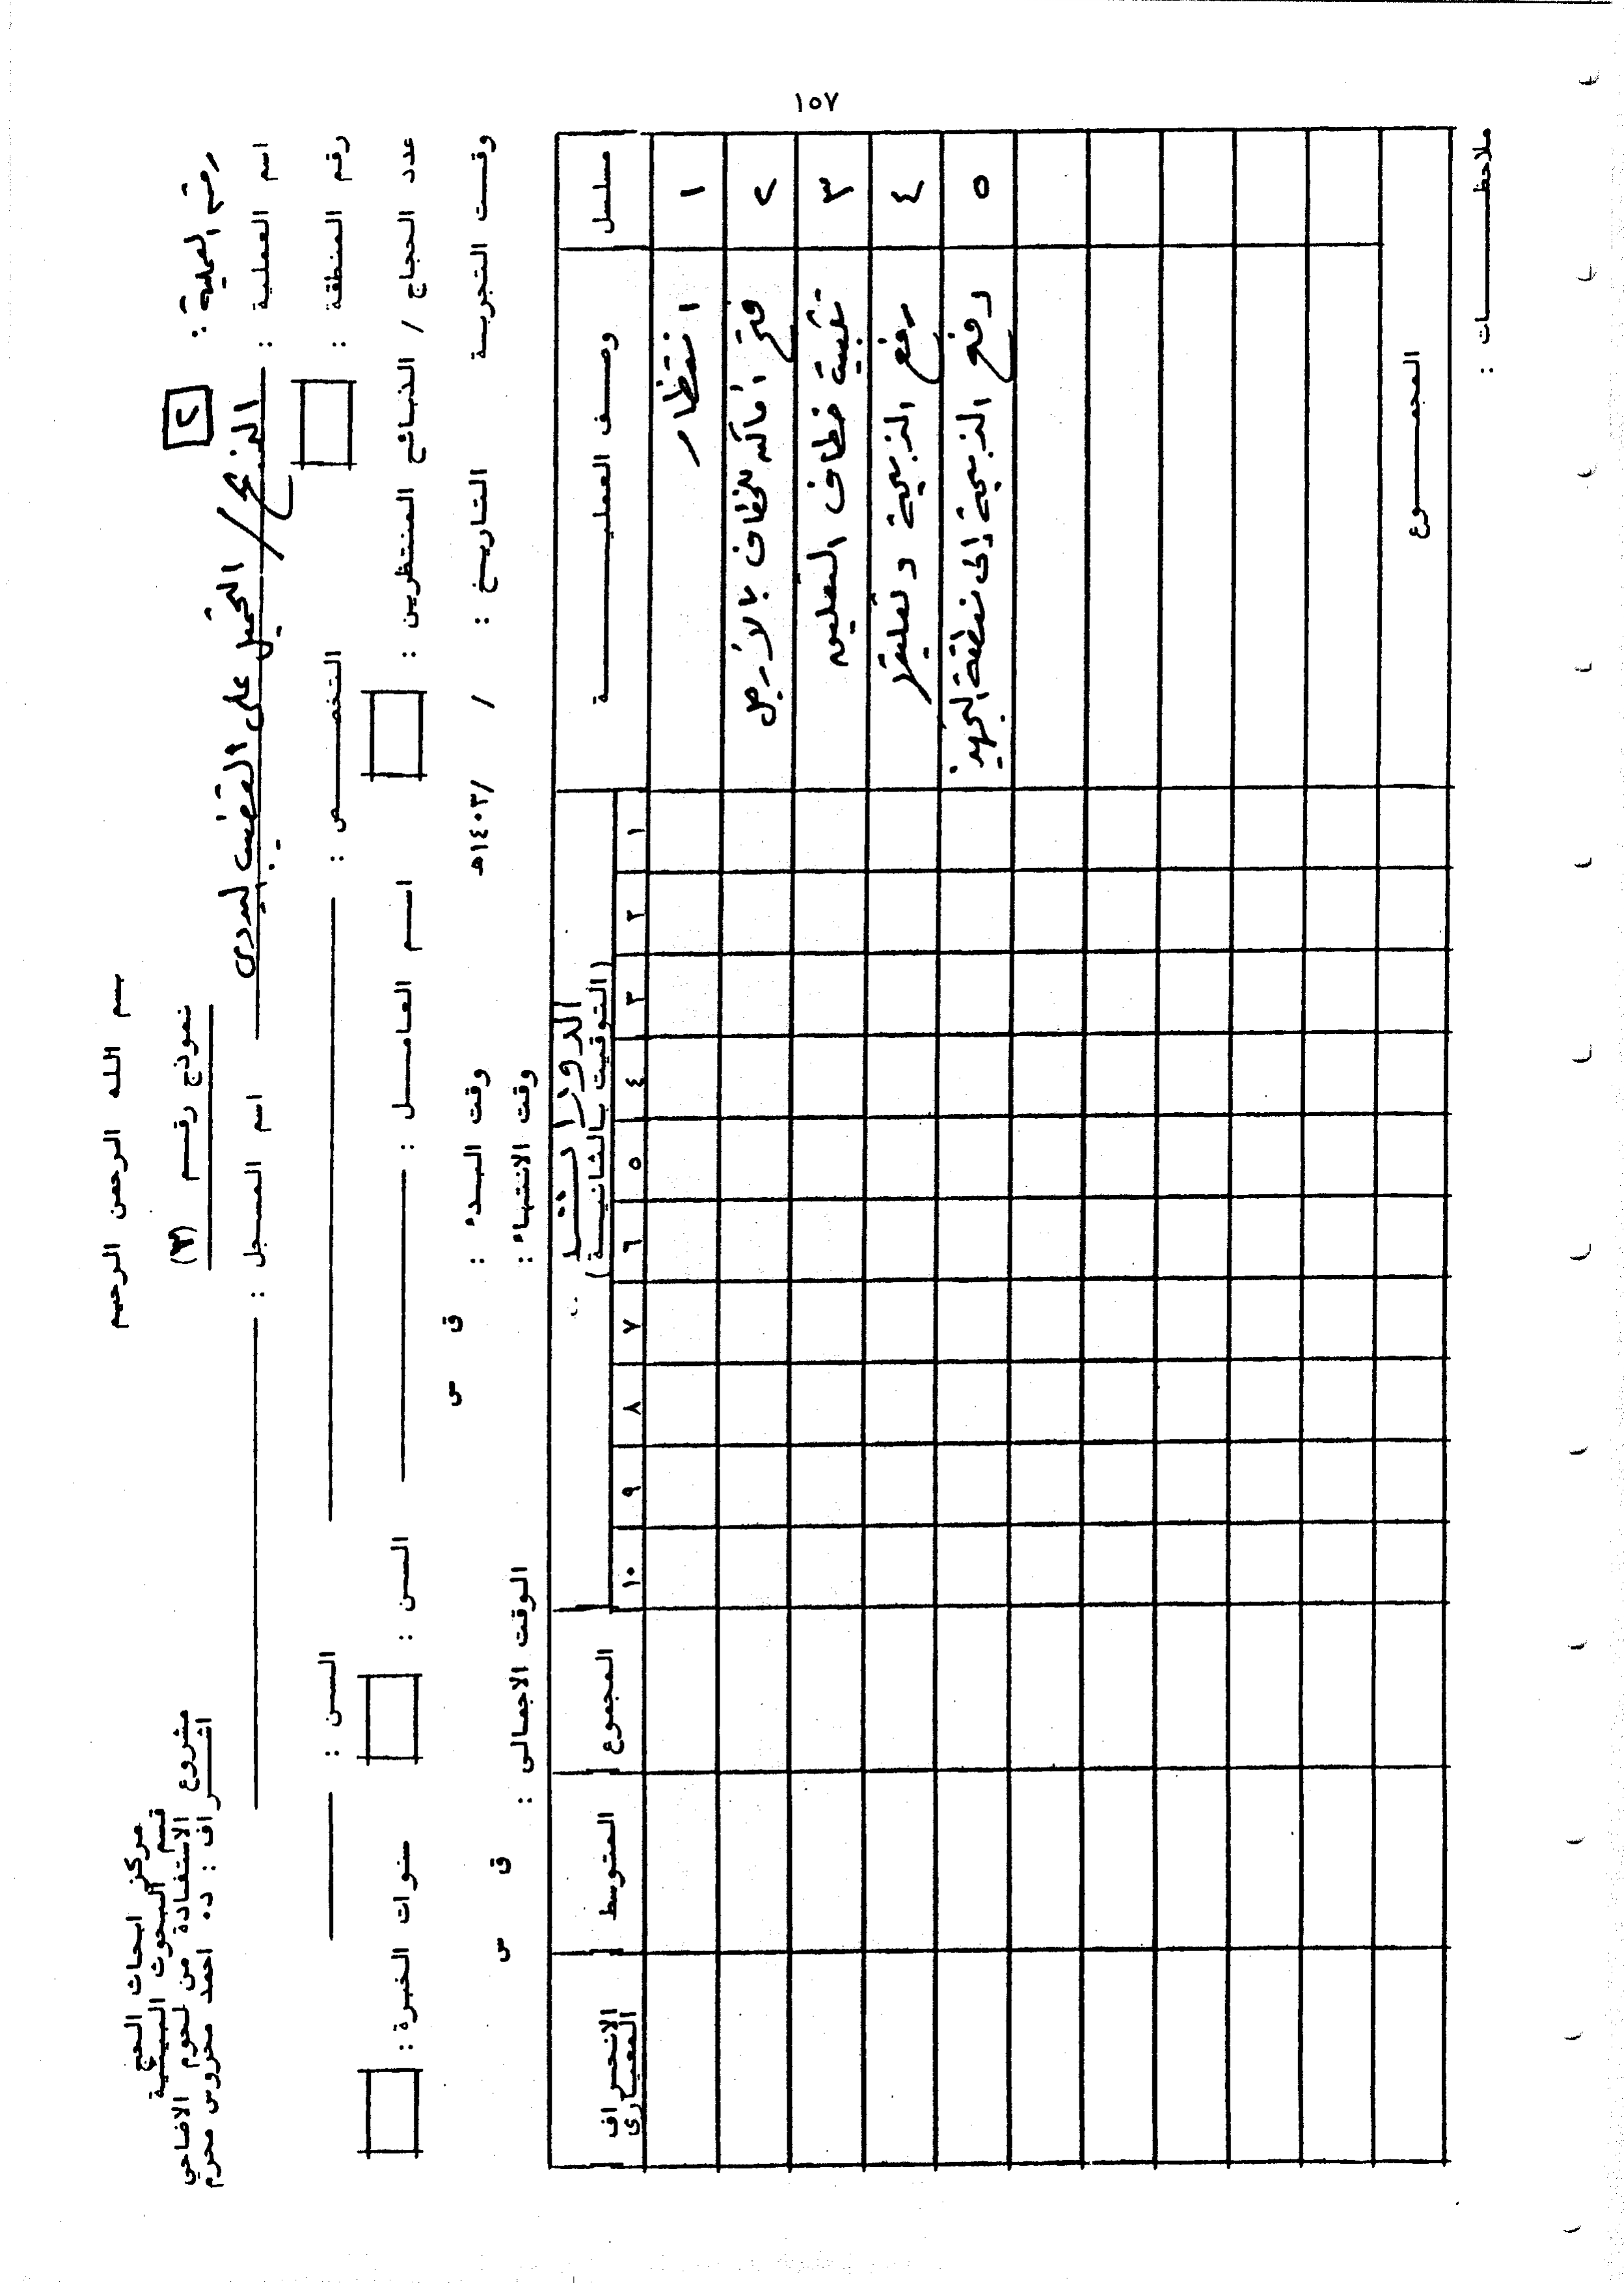 ١٥٧
بسم الله الرحمن الرحيم
مركز ابحاث الحج
قسم البحوث البيئية
مشروع الاستفادة من لحوم الاضاحي
اشـــراف : د٠ احمد محروس محرم
نموذج رقـم (٣)
رقم العملية : ٢
اسم العملية : الذبح / التحميل على القضيب اليدوى
اسم المسجل :
رقم المنطقة :
التخصـــــص :
السـن :
عدد الحجاج / الذبـائح المنتظريـن :
اســم العامــل :
السـن :
سنوات الخبـرة :
وقــت التجربــة
التـاريــخ : / / ١٤٠٣هـ
وقت البـدء : ق س
وقت الانتهاء :
الـوقت الاجمـالى : ق س
مسلسل
وصـــف العمليـــــة
الدورات
(التوقيت بـالثـانيــة)
١ ٢ ٣ ٤ ٥ ٦ ٧ ٨ ٩ ١٠
المجموع
المتوسط
الانحـراف المعيـارى
١ انتظار
٢ فتح أماكن للخطاف بالأرجل
٣ تثبيت خطاف التعليق
٤ رفع الذبيحة وتعليقها
٥ دفع الذبيحة إلى منطقة التجهيز
المجمـــــوع
ملاحظـــــــات :